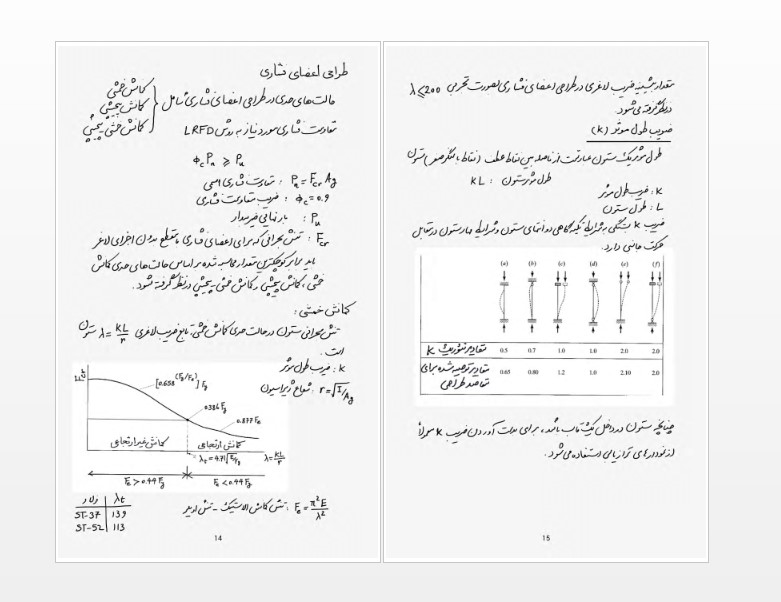 طراحی اعضای فشاری
حالت های حدی در طراحی اعضای فشاری شامل
کمانش خمشی
کمانش پیچشی
کمانش خمشی پیچشی
مقاومت فشاری مورد نیاز به روش LRFD
ϕc Pn ⩾ Pu
Pn = Fcr Ag : مقاومت فشاری اسمی
ϕc = 0.9 : ضریب مقاومت فشاری
Pu : بار نهایی ضریبدار
Fcr : تنش بحرانی که برای اعضای فشاری با مقطع بدون اجزای لاغر
باید برابر کوچکترین مقدار محاسبه شده بر اساس حالت های حدی کمانش
خمشی، کمانش پیچشی و کمانش خمشی پیچشی در نظر گرفته شود.
کمانش خمشی :
تنش بحرانی ستون در حالت حدی کمانش خمشی، تابع ضریب لاغری λ = KL/r ستون
است.
K : ضریب طول موثر
r = √(I/Ag) : شعاع ژیراسیون
Fcr
[0.658^(Fy/Fe)] Fy
0.386 Fy
0.877 Fe
کمانش غیرارتجاعی
کمانش ارتجاعی
λt = 4.71√(E/Fy)
λ = KL/r
Fe > 0.44 Fy
Fe < 0.44 Fy
Fe = π²E/λ² : تنش کمانش الاستیک - تنش اویلر
فولاد | λt
ST-37 | 139
ST-52 | 113
14
مقدار بیشینه ضریب لاغری در طراحی اعضای فشاری بصورت تجربی λ ⩽ 200
در نظر گرفته می شود.
ضریب طول موثر (K)
طول موثر یک ستون عبارتست از فاصله بین نقاط عطف (نقاط با لنگر صفر) ستون
طول موثر ستون : KL
K : ضریب طول موثر
L : طول ستون
ضریب K بستگی به شرایط تکیه گاهی دو انتهای ستون و شرایط مهار ستون در مقابل
حرکت جانبی دارد.
(a) (b) (c) (d) (e) (f)
مقادیر تئوریک K 0.5 0.7 1.0 1.0 2.0 2.0
مقادیر توصیه شده برای مقاصد طراحی 0.65 0.80 1.2 1.0 2.10 2.0
چنانچه ستون در داخل یک قاب باشد، برای بدست آوردن ضریب K معمولاً
از نمودارهای ترازیابی استفاده می شود.
15